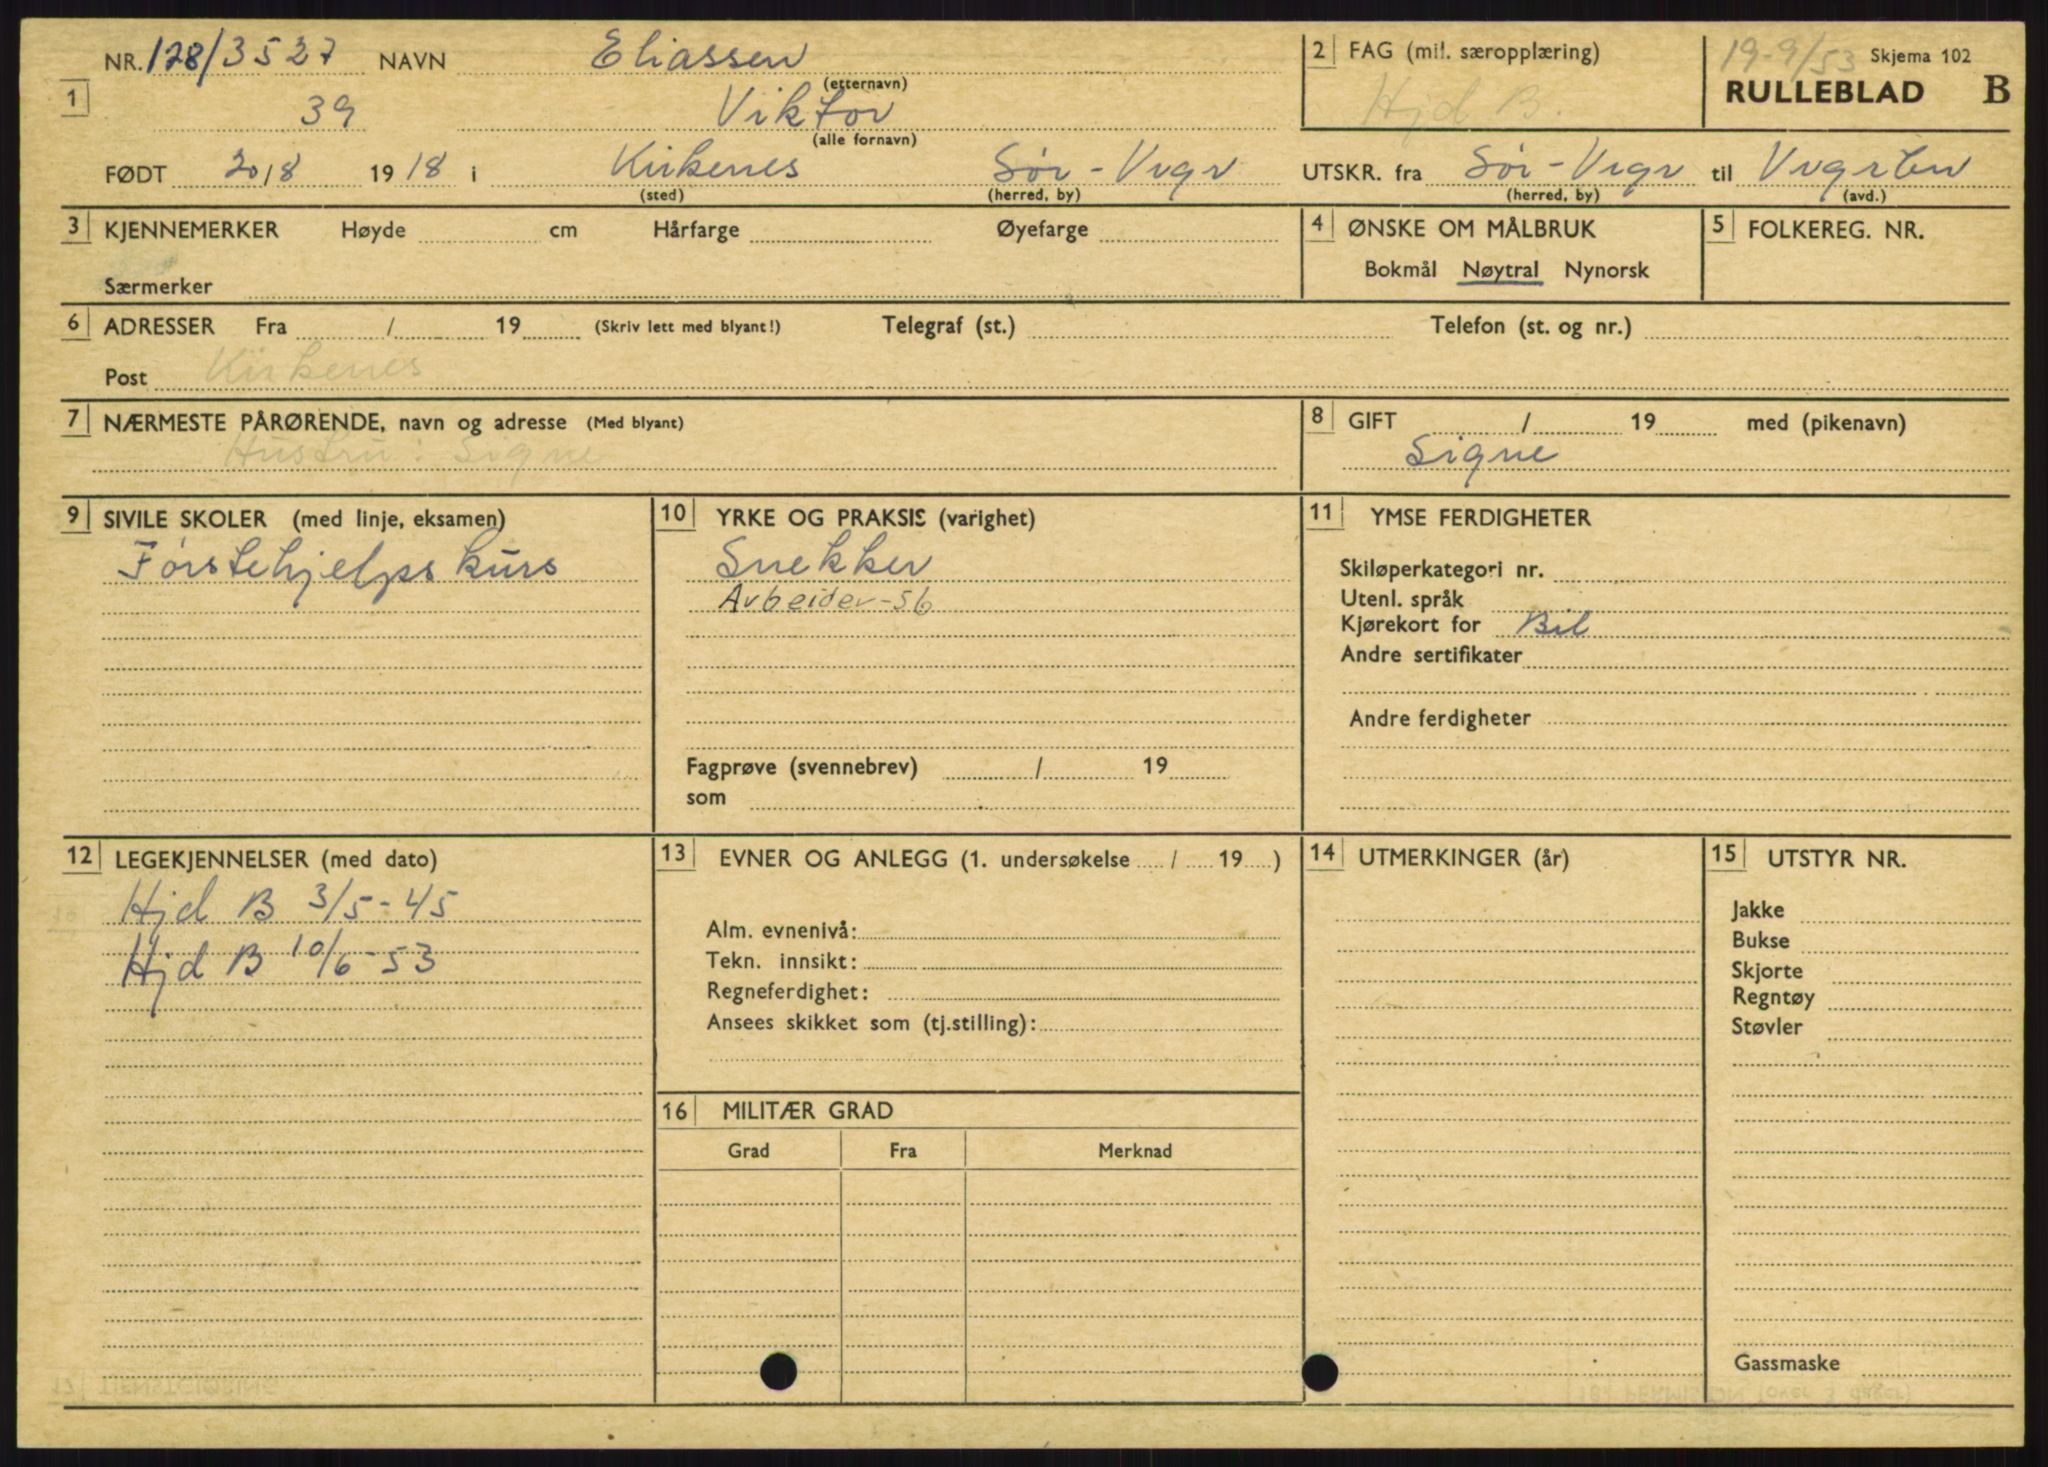 NR. 128/3527 NAVN Eliassen 2 FAG (mil. særopplæring) 19-9/53 Skjema 102
(etternavn)
1 39 Viktor Hjd B. RULLEBLAD B
(alle fornavn)
FØDT 20/8 1918 i Kirkenes Sør-Vrgr UTSKR. fra Sør-Vrgr til Vrgrbn
(sted) (herred, by) (herred, by) (avd.)
3 KJENNEMERKER Høyde cm Hårfarge Øyefarge 4 ØNSKE OM MÅLBRUK 5 FOLKEREG. NR.
Bokmål Nøytral Nynorsk
Særmerker
6 ADRESSER Fra / 19 (Skriv lett med blyant!) Telegraf (st.) Telefon (st. og nr.)
Post Kirkenes
7 NÆRMESTE PÅRØRENDE, navn og adresse (Med blyant) 8 GIFT / 19 med (pikenavn)
Hustru: Signe Signe
9 SIVILE SKOLER (med linje, eksamen) 10 YRKE OG PRAKSIS (varighet) 11 YMSE FERDIGHETER
Førstehjelpskurs Snekker Skiløperkategori nr.
Arbeider-56 Utenl. språk
Kjørekort for Bil
Andre sertifikater
Andre ferdigheter
Fagprøve (svennebrev) / 19
som
12 LEGEKJENNELSER (med dato) 13 EVNER OG ANLEGG (1. undersøkelse / 19 ) 14 UTMERKINGER (år) 15 UTSTYR NR.
Hjd B 3/5-45 Jakke
Alm. evnenivå: Bukse
Hjd B 10/6-53 Tekn. innsikt: Skjorte
Regneferdighet: Regntøy
Ansees skikket som (tj.stilling): Støvler
16 MILITÆR GRAD
Grad Fra Merknad
Gassmaske